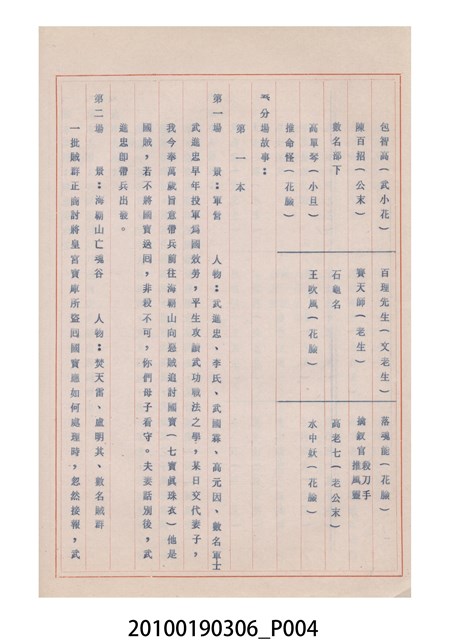 包智高(武小花) 百理先生(文老生) 落魂能(花臉)
陳百招(公末) 賽天師(老生) 擒叙官 殺刀手 推風靈
數名部下 石龜名 高老七(老公末)
高單琴(小旦) 王吹風(花臉) 水中妖(花臉)
推命怪(花臉)
分場故事:
第一本
第一場 景:軍營 人物:武進忠、李氏、武國霖、高元因、數名軍士
武進忠早年投軍為國效勞,平生攻讀武功戰法之學,某日交代妻子,
我今奉萬歲旨意帶兵前往海霸山向惡賊追討國寶(七寶眞珠衣)他是
國賊,若不將國寶送囘,非殺不可,你們母子看守。夫妻話別後,武
進忠卽帶兵出發。
第二場 景:海霸山亡魂谷 人物:焚天雷、盧明其、數名賊群
一批賊群正商討將皇宮寶庫所盜囘國寶應如何處理時,忽然接報,武
20100190306_P004